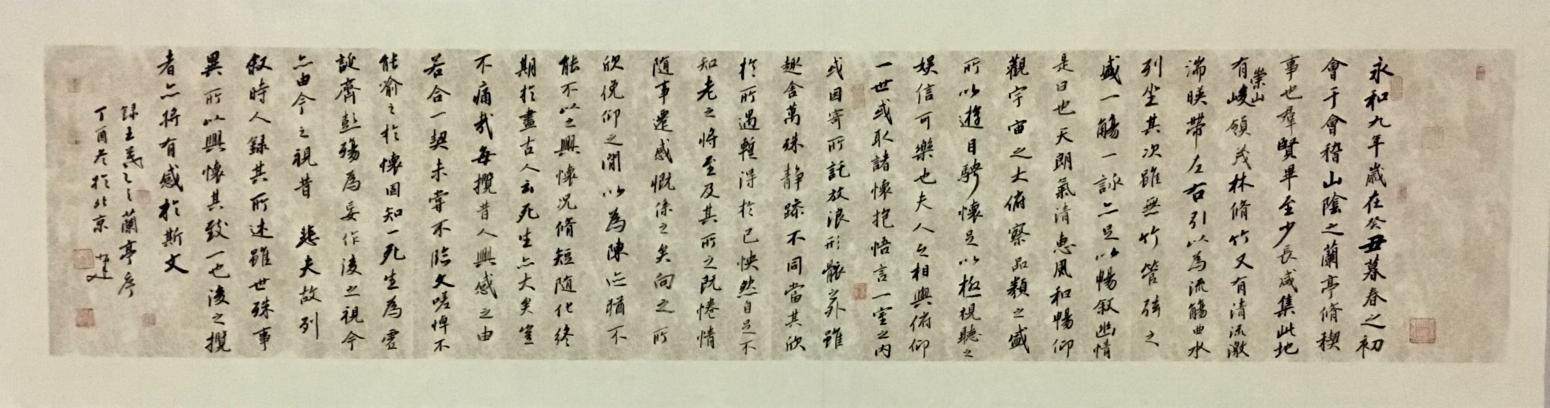 永和九年歲在癸丑暮春之初
會于會稽山陰之蘭亭脩稧
事也群賢畢至少長咸集此地
有崇山峻領茂林脩竹又有清流激
湍暎帶左右引以為流觴曲水
列坐其次雖無竹管弦之
盛一觴一詠亦足以暢敘幽情
是日也天朗氣清惠風和暢仰
觀宇宙之大俯察品類之盛
所以遊目騁懷足以極視聽之
娛信可樂也夫人之相與俯仰
一世或取諸懷抱悟言一室之內
或因寄所託放浪形骸之外雖
趣舍萬殊靜躁不同當其欣
於所遇暫得於己怏然自足不
知老之將至及其所之既惓情
隨事遷感慨係之矣向之所
欣俛仰之閒以為陳迹猶不
能不以之興懷況脩短隨化終
期於盡古人云死生亦大矣豈
不痛哉每攬昔人興感之由
若合一契未嘗不臨文嗟悼不
能喻之於懷固知一死生為虛
誕齊彭殤為妄作後之視今
亦由今之視昔 悲夫故列
敘時人錄其所述雖世殊事
異所以興懷其致一也後之攬
者亦將有感於斯文
錄王羲之蘭亭序
丁酉冬於北京